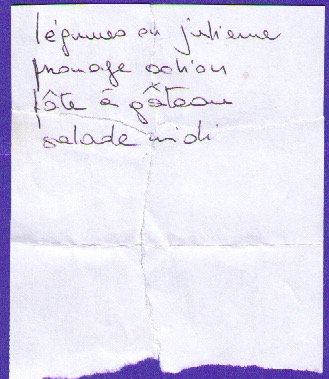 légumes en julienne
fromage action
pâte à gâteau
salade midi